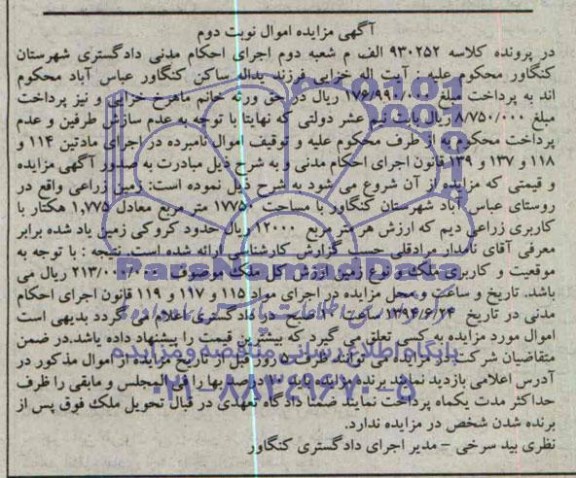 آگهی مزایده اموال نوبت دوم
در پرونده کلاسه ۹۳۰۲۵۲ الف م شعبه دوم اجرای احکام مدنی دادگستری شهرستان
کنگاور محکوم علیه : آیت اله خزایی فرزند یداله ساکن کنگاور عباس آباد محکوم
اند به پرداخت مبلغ ریال در حق ورثه خانم ماهرخ خزایی و نیز پرداخت
مبلغ ۸/۷۵۰/۰۰۰ ریال بابت نیم عشر دولتی که نهایتا با توجه به عدم سازش طرفین و عدم
پرداخت محکوم به از طرف محکوم علیه و توقیف اموال نامبرده در اجرای مادتین ۱۱۴ و
۱۱۸ و ۱۳۷ و ۱۳۹ قانون اجرای احکام مدنی و به شرح ذیل مبادرت به صدور آگهی مزایده
و قیمتی که مزایده از آن شروع می شود به شرح ذیل نموده است: زمین زراعی واقع در
روستای عباس آباد شهرستان کنگاور با مساحت ۱۷۷۵۰ متر مربع معادل ۱,۷۷۵ هکتار با
کاربری زراعی دیم که ارزش هر متر مربع ۱۲۰۰۰ ریال حدود کروکی زمین یاد شده برابر
معرفی آقای نامدار مرادقلی حسب گزارش کارشناسی ارائه شده است. نتیجه : با توجه به
موقعیت و کاربری ملک و نوع زمین ارزش کل ملک موصوف ۲۱۳/۰۰۰/۰۰۰ ریال می
باشد. تاریخ و ساعت و محل مزایده در اجرای مواد ۱۱۵ و ۱۱۷ و ۱۱۹ قانون اجرای احکام
مدنی در تاریخ ۱۳۹۴/۶/۲۴ ساعت ۱۰ صبح در دادگستری اعلام می گردد بدیهی است
اموال مورد مزایده به کسی تعلق می گیرد که بیشترین قیمت را پیشنهاد داده باشد.در ضمن
متقاضیان شرکت در مزایده می توانند ظرف ۵ روز قبل از تاریخ مزایده از اموال مذکور در
آدرس اعلامی بازدید نمایند برنده مزایده باید ۱۰ درصد بها را فی المجلس و مابقی را ظرف
حداکثر مدت یکماه پرداخت نمایند ضمنا دادگاه تعهدی در قبال تحویل ملک فوق پس از
برنده شدن شخص در مزایده ندارد.
نظری بید سرخی – مدیر اجرای دادگستری کنگاور
ParsNamadData
پایگاه اطلاع رسانی مناقصه و مزایده
۰۲۱-۸۸۳۴۹۶۷۰-۵